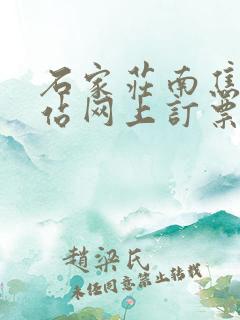 石家莊南焦
佔网上訂票
趙梁氏
未经同意禁止转载